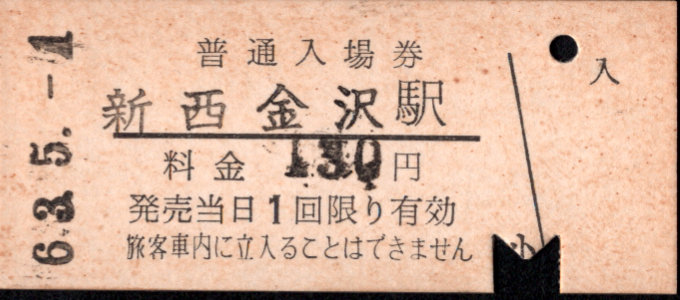 普通入場券
新西金沢駅
料金130円
発売当日1回限り有効
旅客車内に立入ることはできません
入
小
63.5.-1